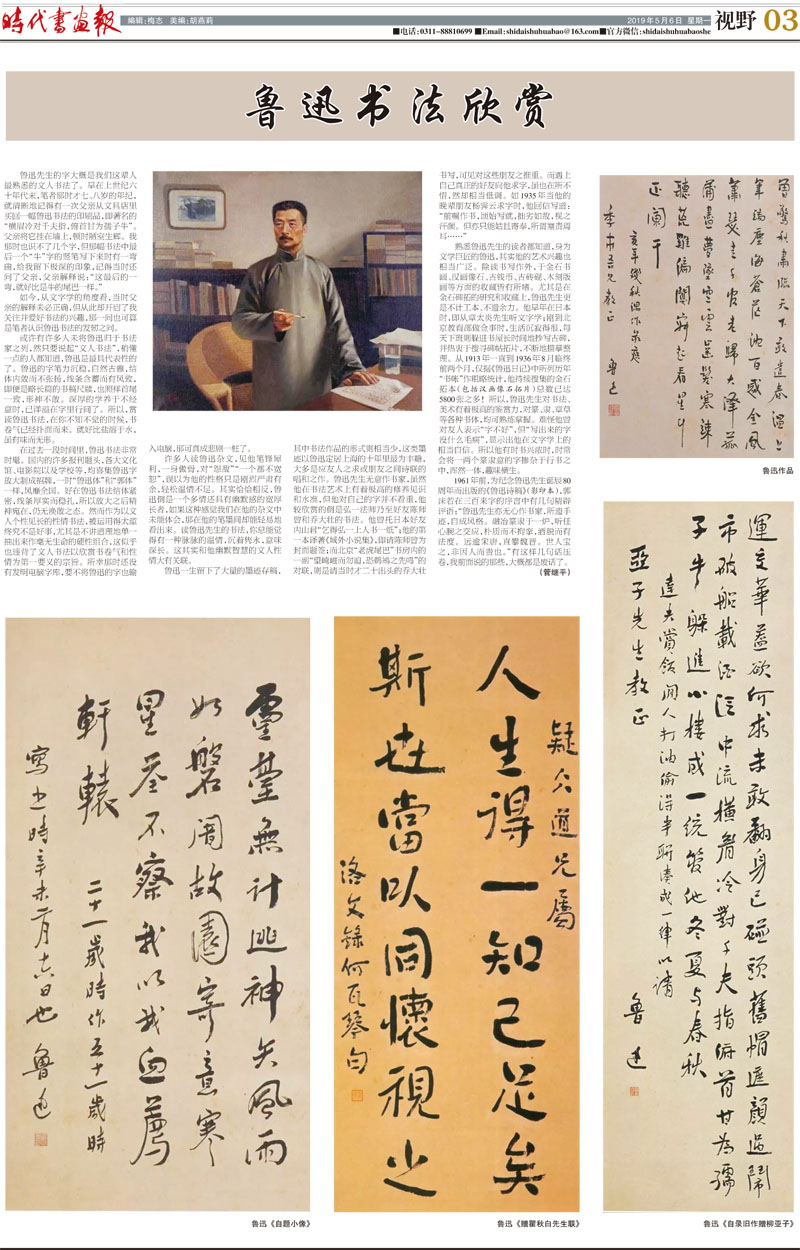 時代書畫報
编辑:梅志 美编:胡燕莉
2019年5月6日 星期一
视野 03
■电话:0311-88810699 ■Email:shidaishuhuabao@163.com■官方微信:shidaishuhuabaoshe
鲁迅书法欣赏
鲁迅先生的字大概是我们这辈人
最熟悉的文人书法了。早在上世纪六
十年代末,笔者那时才七、八岁的年纪,
就清晰地记得有一次父亲从文具店里
买回一幅鲁迅书法的印刷品,即著名的
“横眉冷对千夫指,俯首甘为孺子牛”。
父亲将它挂在墙上,顿时陋室生辉。我
那时也识不了几个字,但那幅书法中最
后一个“牛”字的竖笔写下来时有一弯
曲,给我留下极深的印象,记得当时还
问了父亲,父亲解释说:“这最后的一
弯,就好比是牛的尾巴一样。”
如今,从文字学的角度看,当时父
亲的解释未必正确,但从此却开启了我
关注并爱好书法的兴趣,那一问也可算
是笔者认识鲁迅书法的发轫之问。
或许有许多人未将鲁迅归于书法
家之列,然只要说起“文人书法”,稍懂
一点的人都知道,鲁迅是最具代表性的
了。鲁迅的字笔力沉稳,自然古雅,结
体内敛而不张扬,线条含蓄而有风致,
即便是略长篇的书稿尺牍,也照样首尾
一致,形神不散。深厚的学养于不经
意时,已洋溢在字里行间了。所以,赏
读鲁迅书法,在你不知不觉的时候,书
卷气已经扑面而来。就好比盐溶于水,
虽有味而无形。
在过去一段时间里,鲁迅书法非常
时髦。国内的许多报刊题头,各大文化
馆、电影院以及学校等,均喜集鲁迅字
放大制成招牌,一时“鲁迅体”和“郭体”
一样,风靡全国。好在鲁迅书法结体紧
密,线条厚实而稳扎,所以放大之后精
神宛在,仍无涣散之态。然而作为以文
人个性见长的性情书法,被运用得太滥
终究不是好事,尤其是不讲道理地单一
抽出来作毫无生命的硬性组合,这似乎
也违背了文人书法以欣赏书卷气和性
情为第一要义的宗旨。所幸那时还没
有发明电脑字库,要不将鲁迅的字也输
入电脑,那可真成悲剧一桩了。
许多人读鲁迅杂文,见他笔锋犀
利,一身傲骨,对“怨敌”“一个都不宽
恕”,误以为他的性格只是刚烈严肃有
余,轻松温情不足。其实恰恰相反,鲁
迅倒是一个多情还具有幽默感的宽厚
长者,如果这种感觉我们在他的杂文中
未能体会,那在他的笔墨间却能轻易地
看出来。读鲁迅先生的书法,你总能觉
得有一种脉脉的温情,沉着隽永,意味
深长。这其实和他幽默智慧的文人性
情大有关联。
鲁迅一生留下了大量的墨迹存稿,
其中书法作品的形式则相当少,这类墨
迹以鲁迅定居上海的十年里最为丰赡,
大多是应友人之求或朋友之间诗联的
唱和之作。鲁迅先生无意作书家,虽然
他在书法艺术上有着极高的修养见识
和水准,但他对自己的字并不看重,他
较欣赏的倒是弘一法师乃至好友陈师
曾和乔大壮的书法。他曾托日本好友
内山君“乞得弘一上人书一纸”;他的第
一本译著《域外小说集》,即请陈师曾为
封面题签;而北京“老虎尾巴”书房内的
一副“望崦嵫而勿迫,恐鹈鴂之先鸣”的
对联,则是请当时才二十出头的乔大壮
书写,可见对这些朋友之推重。而遇上
自己真正的好友向他求字,虽也在所不
惜,然却相当低调。如1935年当他的
晚辈朋友杨霁云求字时,他回信写道:
“前嘱作书,顷始写就,拙劣如故,视之
汗颜。但亦只能姑且寄奉,所谓塞责周
耳……”
熟悉鲁迅先生的读者都知道,身为
文学巨匠的鲁迅,其实他的艺术兴趣也
相当广泛。除读书写作外,于金石书
画、汉画像石、古钱币、古砖砚、木刻版
画等方面的收藏皆有所嗜。尤其是在
金石碑拓的研究和收藏上,鲁迅先生更
是不计工本,不遗余力。他早年在日本
时,即从章太炎先生听文字学;刚到北
京教育部做佥事时,生活沉寂得很,每
天下班则躲进书屋长时间地抄写古碑,
并热衷于搜寻碑帖拓片,不断地摸摹整
理。从1913年一直到1936年8月临终
前两个月,仅据《鲁迅日记》中所列历年
“书帐”作粗略统计,他持续搜集的金石
拓本(包括汉画像石拓片)总数已达
5800张之多!所以,鲁迅先生对书法、
美术有着极高的鉴赏力,对篆、隶、章草
等各种书体,均可熟练掌握。难怪他曾
对友人表示“字不好”,但“写出来的字
没什么毛病”,显示出他在文字学上的
相当自信。所以他有时书兴浓时,时常
会将一两个篆隶意的字掺杂于行书之
中,浑然一体,趣味横生。
1961年前,为纪念鲁迅先生诞辰80
周年而出版的《鲁迅诗稿》(影印本),郭
沫若在三百来字的序言中有几句精辟
评语:“鲁迅先生亦无心作书家,所遗手
迹,自成风格。融冶篆隶于一炉,听任
心腕之交应,朴质而不拘挛,洒脱而有
法度。远逾宋唐,直攀魏晋。世人宝
之,非因人而贵也。”有这样几句话压
卷,我前面说的那些,大概都是废话了。
(管继平)
曾驚秋肅臨天下敢遣春溫上
筆端塵海蒼茫沈百感金風
蕭瑟走千官老歸大澤菰
蒲盡夢墜空雲齒髮寒竦
聽荒雞偏闃寂起看星斗
正闌干
亥年殘秋偶作录應
季市吾兄教正
魯迅
鲁迅作品
運交華蓋欲何求未敢翻身已碰頭舊帽遮顏過鬧
市破船載酒泛中流橫眉冷對千夫指俯首甘為孺
子牛躲進小樓成一統管他冬夏與春秋
達夫賞飯閒人打油偷得半聯湊成一律以請
亞子先生教正
魯迅
鲁迅《自录旧作赠柳亚子》
疑仌道兄屬
人生得一知己足矣
斯世當以同懷視之
洛文錄何瓦琴句
鲁迅《赠瞿秋白先生联》
靈臺無計逃神矢風雨
如磐闇故園寄意寒
星荃不察我以我血薦
軒轅
二十一歲時作五十一歲時
寫之時辛未二月十六日也
魯迅
鲁迅《自题小像》